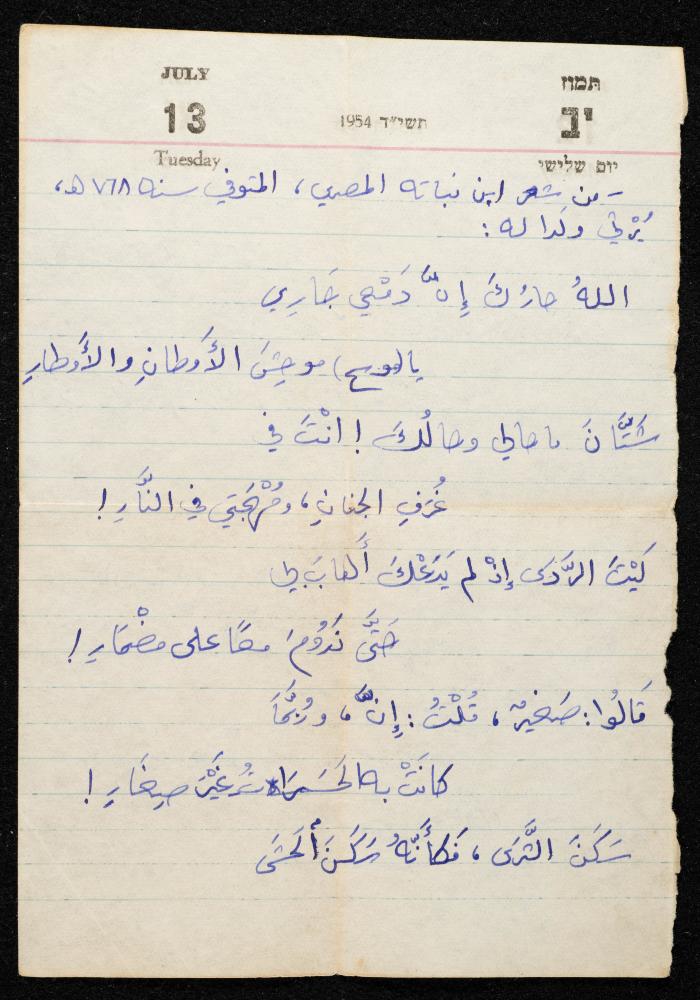 JULY
13
Tuesday
1954 תשי״ד
תמוז
יב
יום שלישי
- من شعر ابن نباته المصري، المتوفي سنة ٧٦٨ هـ،
يُرْثي ولدا له :
اللهُ جارُكَ إِنَّ دَمْعِي جَارِي
يا موحِشَ الأَوطانِ والأَوطارِ
شَتَّانَ ما حالي وحالُكَ ! انْتَ في
غُرَفِ الجنانِ، ومُهْجَتِي في النَّارِ !
لَيْتَ الرَّدَى إِذْ لم يَدَعْكَ أَهابَ بي
حَتَّى نَدُومَ معًا على مضْمَارِ !
قَالُوا: صَغيرٌ، قُلْتُ : إِنَّ، ورُبَّمَا
كانَتْ به الحَسَراتُ غَيْرَ صِغَارِ !
سَكَنَ الثَّرَى، فَكأَنَّهُ سَكَنَ الحَشَى